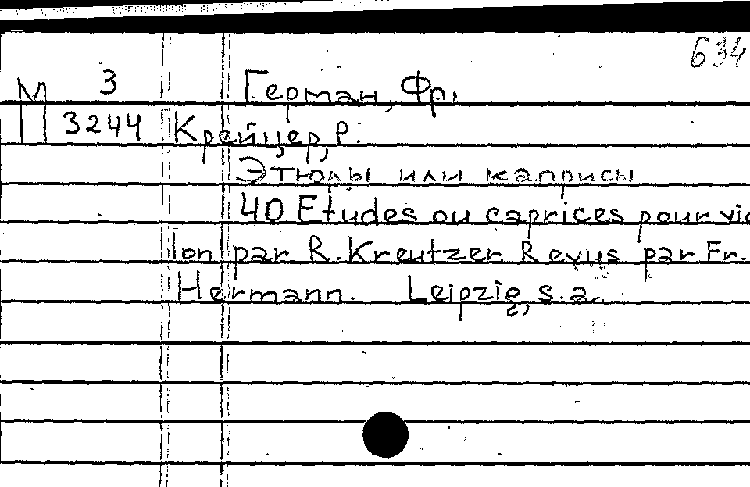 634
М 3 Герман, Фр.
3244 Крейцер, Р.
Этюды или каприсы
40 Etudes ou caprices pour vio
lon par R. Kreutzer Revus par Fr.
Hermann. Leipzig, s.a.